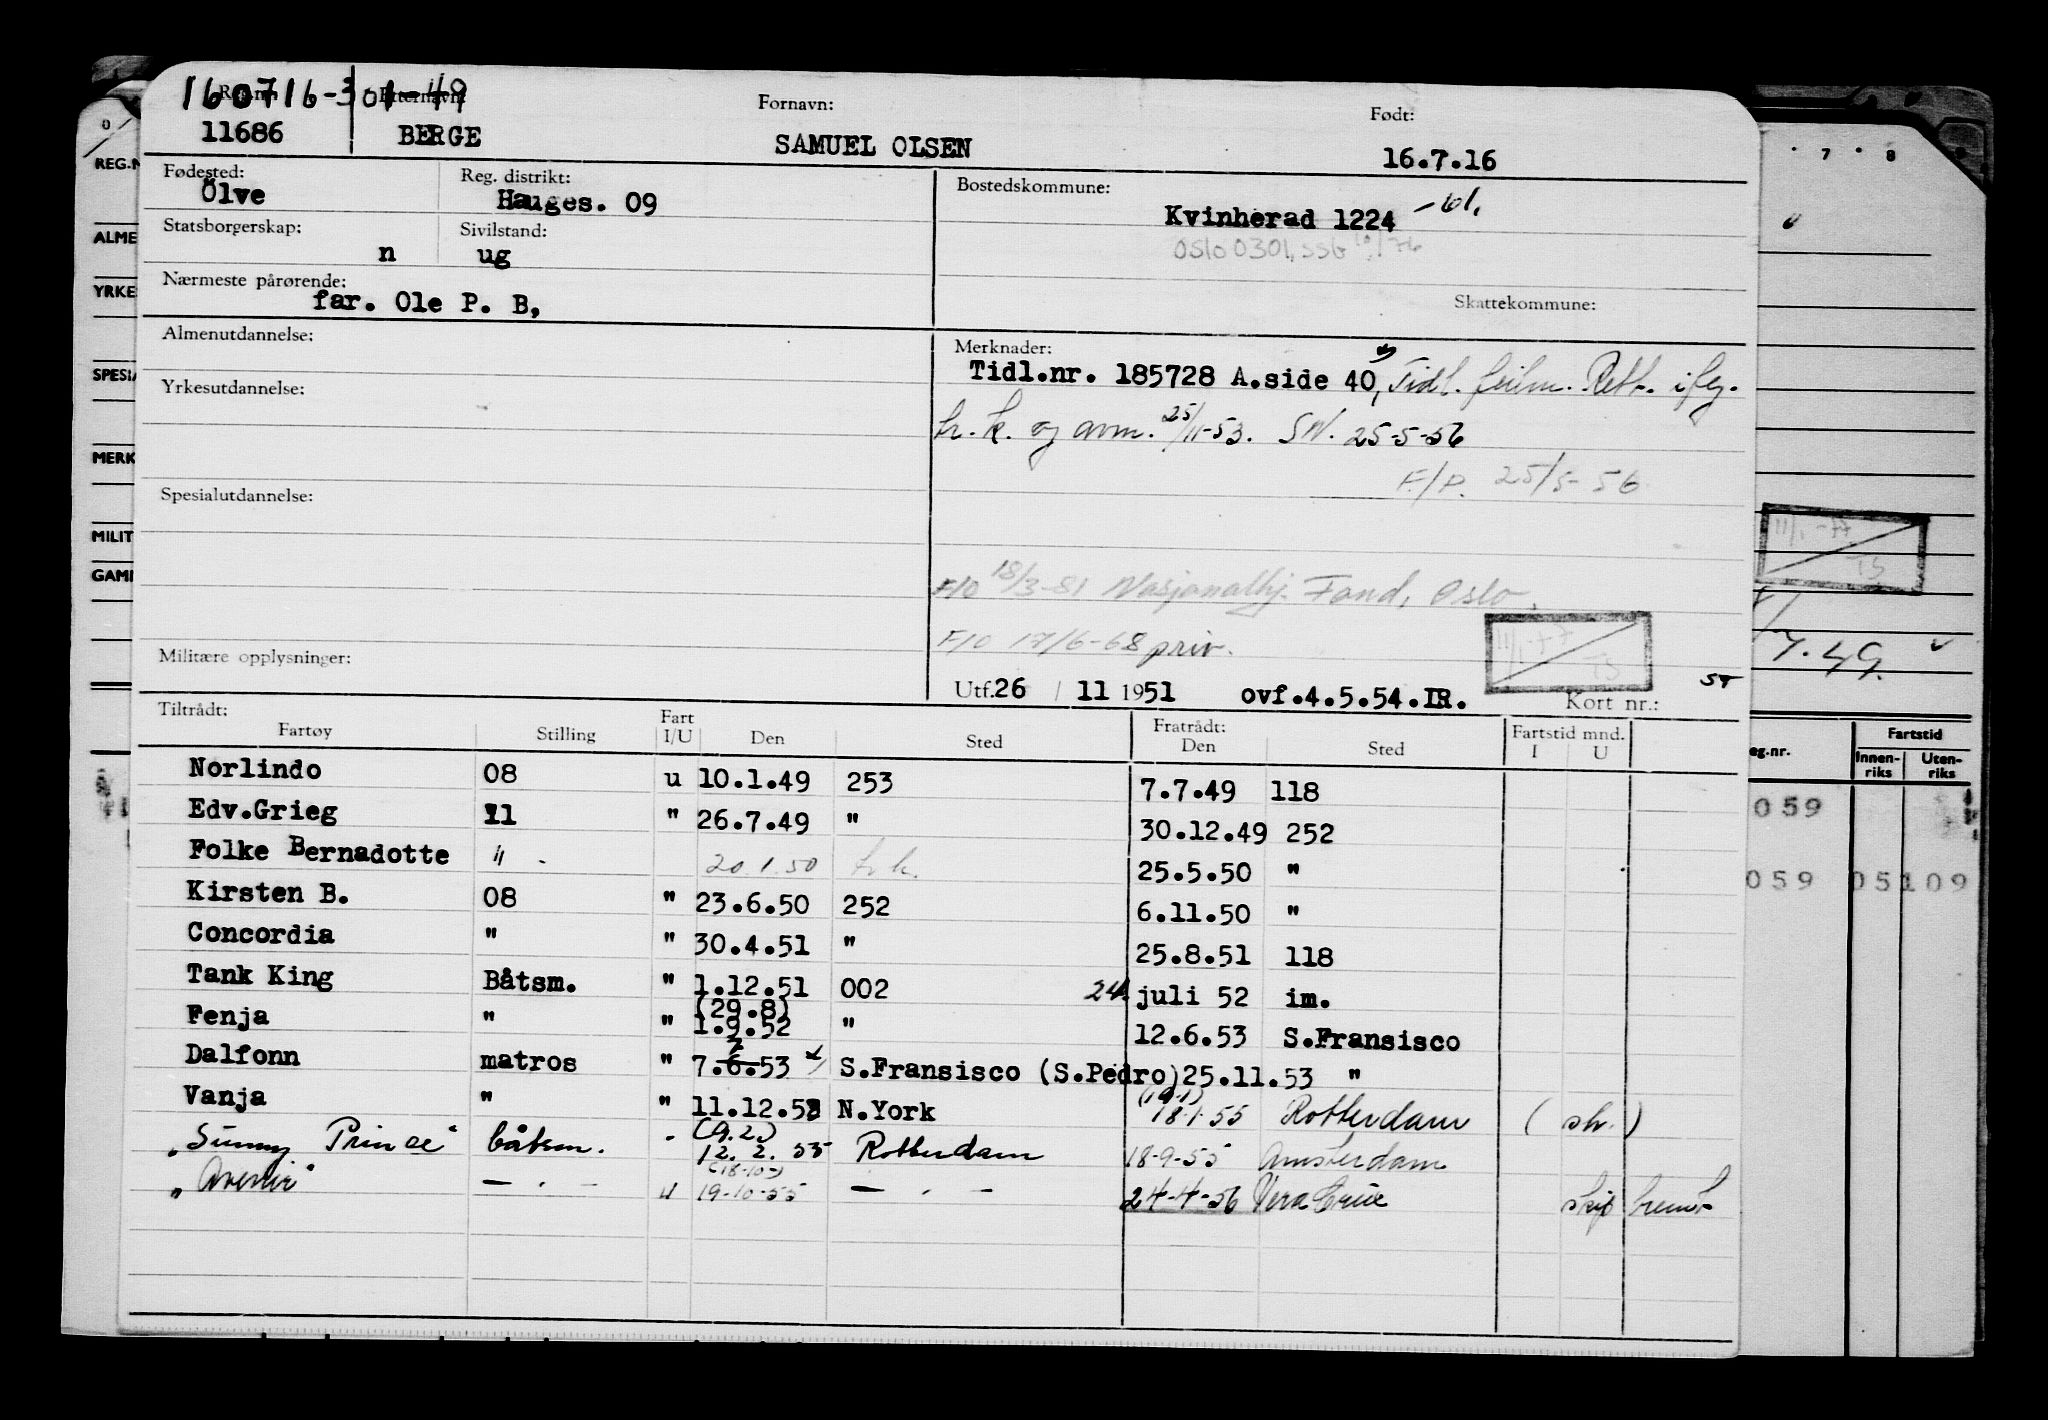 160716-301-49
Reg.nr. Etternavn: Fornavn: Født:
11686 BERGE SAMUEL OLSEN 16.7.16
Fødested: Reg. distrikt: Bostedskommune:
Ølve Hauges. 09 Kvinherad 1224 -61.
Statsborgerskap: Sivilstand:
n ug Oslo 0301, SSB
Nærmeste pårørende: Skattekommune:
far. Ole P. B,
Almenutdannelse: Merknader:
Tidl.nr. 185728 A.side 40, Tidl. feilm. Rett. i fag.
Yrkesutdannelse:
tr. k. og anm. 25/11-53. SN. 25-5-56
F/P. 25/5-56
Spesialutdannelse:
F/O 18/3-81 Nasjonalhj. Fond, Oslo,
F/O 17/6-68 priv.
11/1-77
TS
Militære opplysninger: Utf. 26 / 11 1951 ovf.4.5.54.IR. Kort nr.: ST
Tiltrådt: Fratrådt: Fartstid mnd.
Fartøy Stilling Fart I/U Den Sted Den Sted I U
Norlindo 08 u 10.1.49 253 7.7.49 118
Edv.Grieg 11 " 26.7.49 " 30.12.49 252
Folke Bernadotte " 20.1.50 tr.k. 25.5.50 "
Kirsten B. 08 " 23.6.50 252 6.11.50 "
Concordia " " 30.4.51 " 25.8.51 118
Tank King Båtsm. " 1.12.51 002 24. juli 52 im.
(29.8)
Fenja " " 1.9.52 " 12.6.53 S.Fransisco
Dalfonn matros " 7.6.53 S.Fransisco (S.Pedro) 25.11.53 "
7
Vanja " " 11.12.53 N.York 18.1.55 Rotterdam ( str. )
(19.1)
"Sunny Prince" båtsm. - (9.2.) 12. 2. 55 Rotterdam 18-9-55 Amsterdam
(18-10-)
"Avenir" — . — " 19-10-55 — . — 24-4-56 Vera Cruz skip
REG.N
ALME
YRKE
SPESIA
MERK
MILIT
GAMI
7 8
11/1-77
TS
7.49.
eg.nr. Fartstid
Innen-riks Uten-riks
059
059 05109